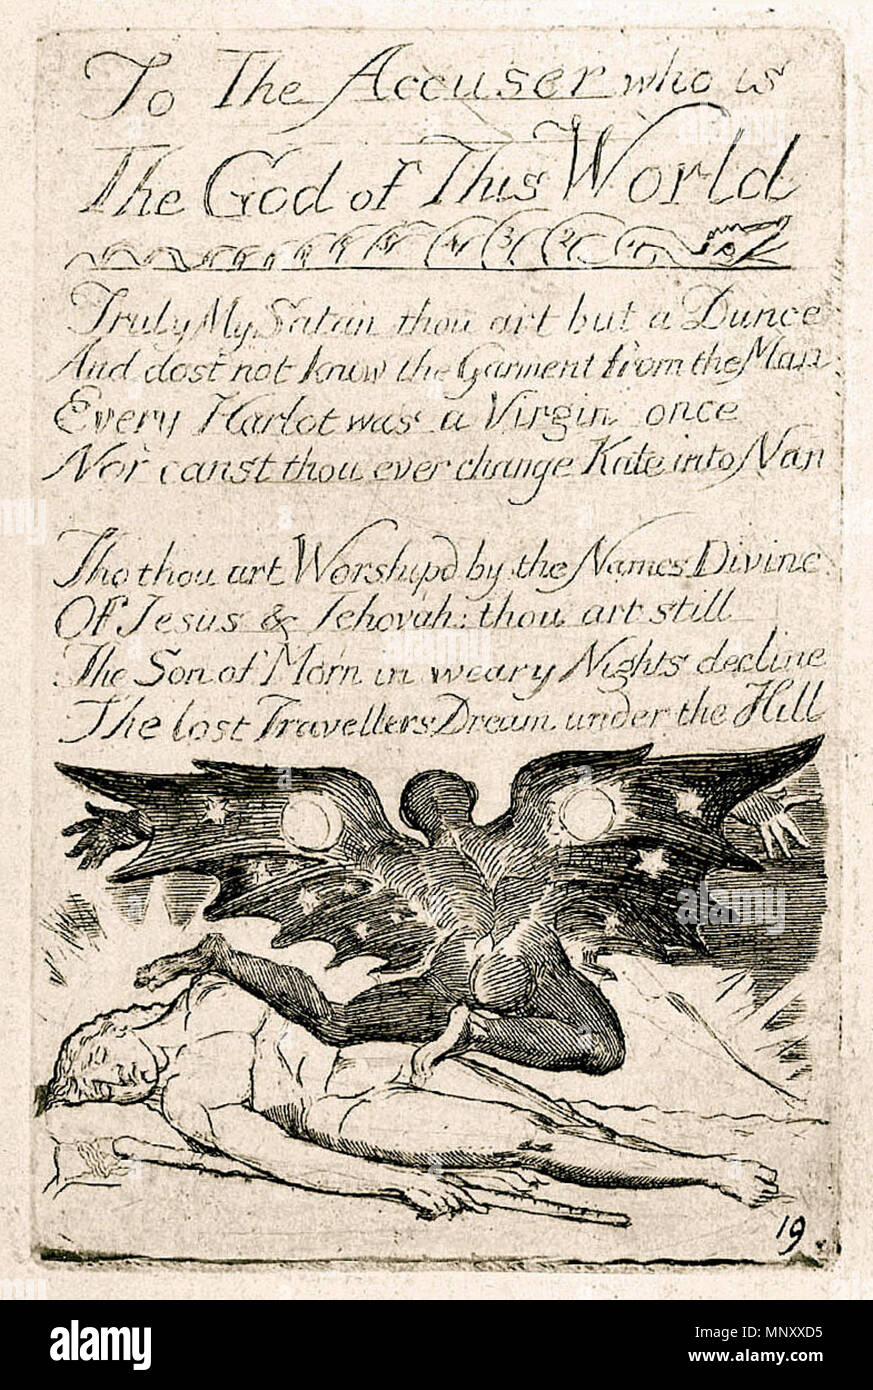 To The Accuser who is
The God of This World
5 4 3 2 1
Truly My Satan thou art but a Dunce
And dost not know the Garment from the Man
Every Harlot was a Virgin once
Nor canst thou ever change Kate into Nan
Tho thou art Worship'd by the Names Divine
Of Jesus & Jehovah: thou art still
The Son of Morn in weary Nights decline
The lost Travellers Dream under the Hill
19
alamy
alamy stock photo
MNXXD5
www.alamy.com